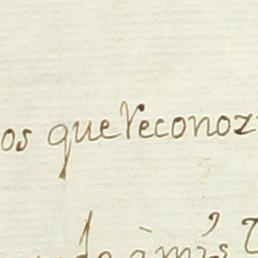 os que reconoz
à mis